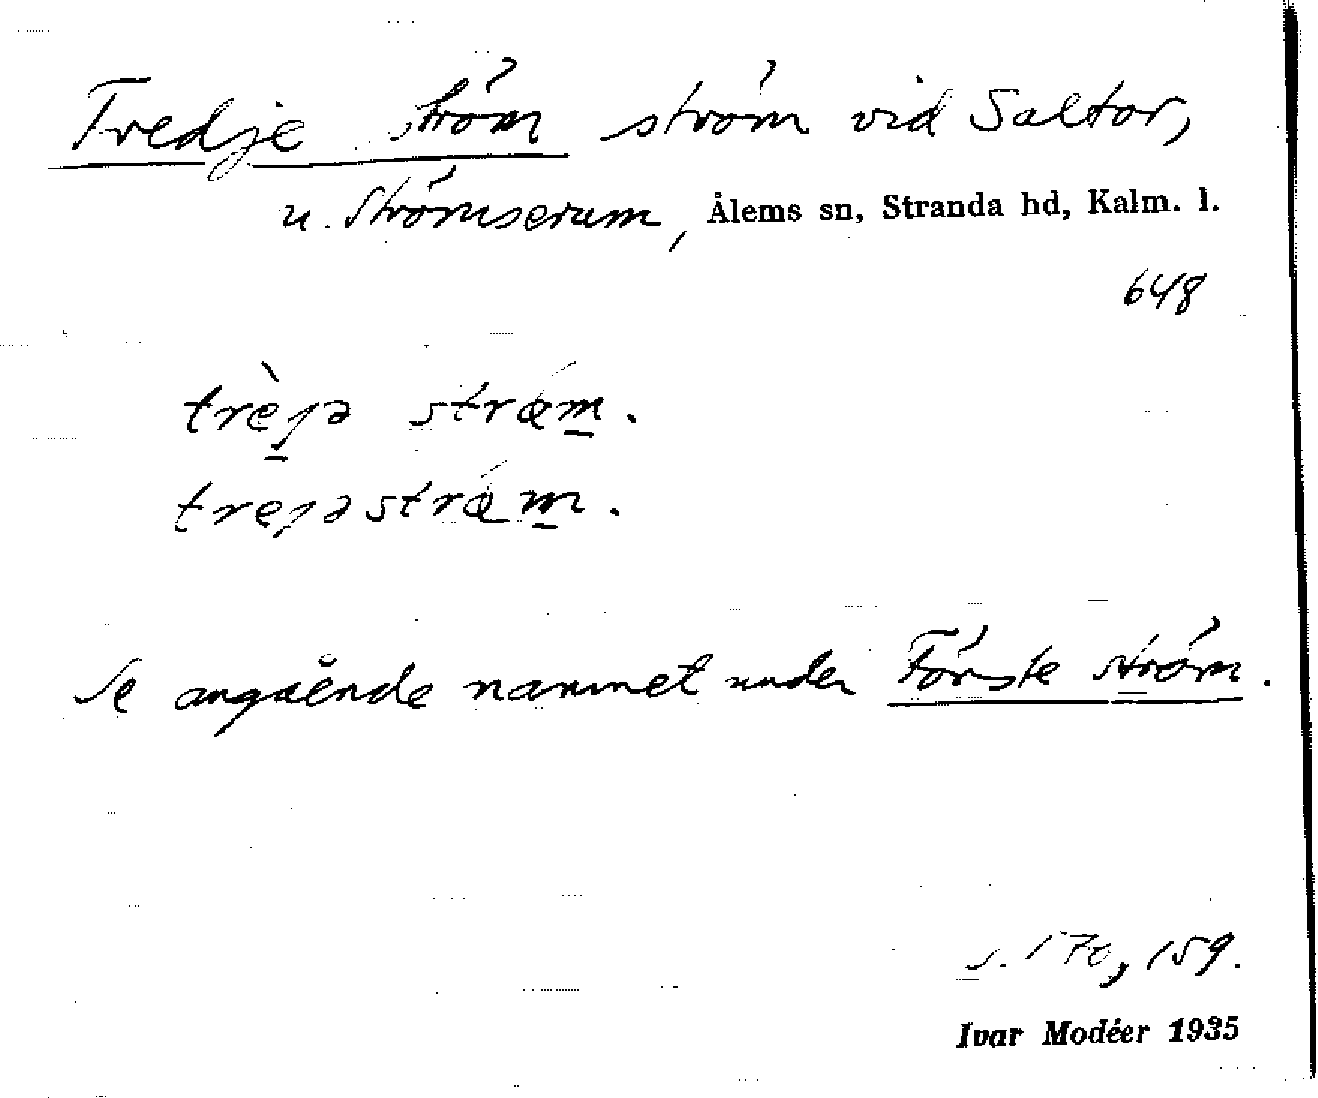 Tredje ström ström vid Saltor,
u. Strömserum, Ålems sn, Stranda hd, Kalm. l.
648
trèȷə strǿm.
treȷəstrǿm.
Se angående namnet under Förste ström.
s. 170, 159.
Ivar Modéer 1935